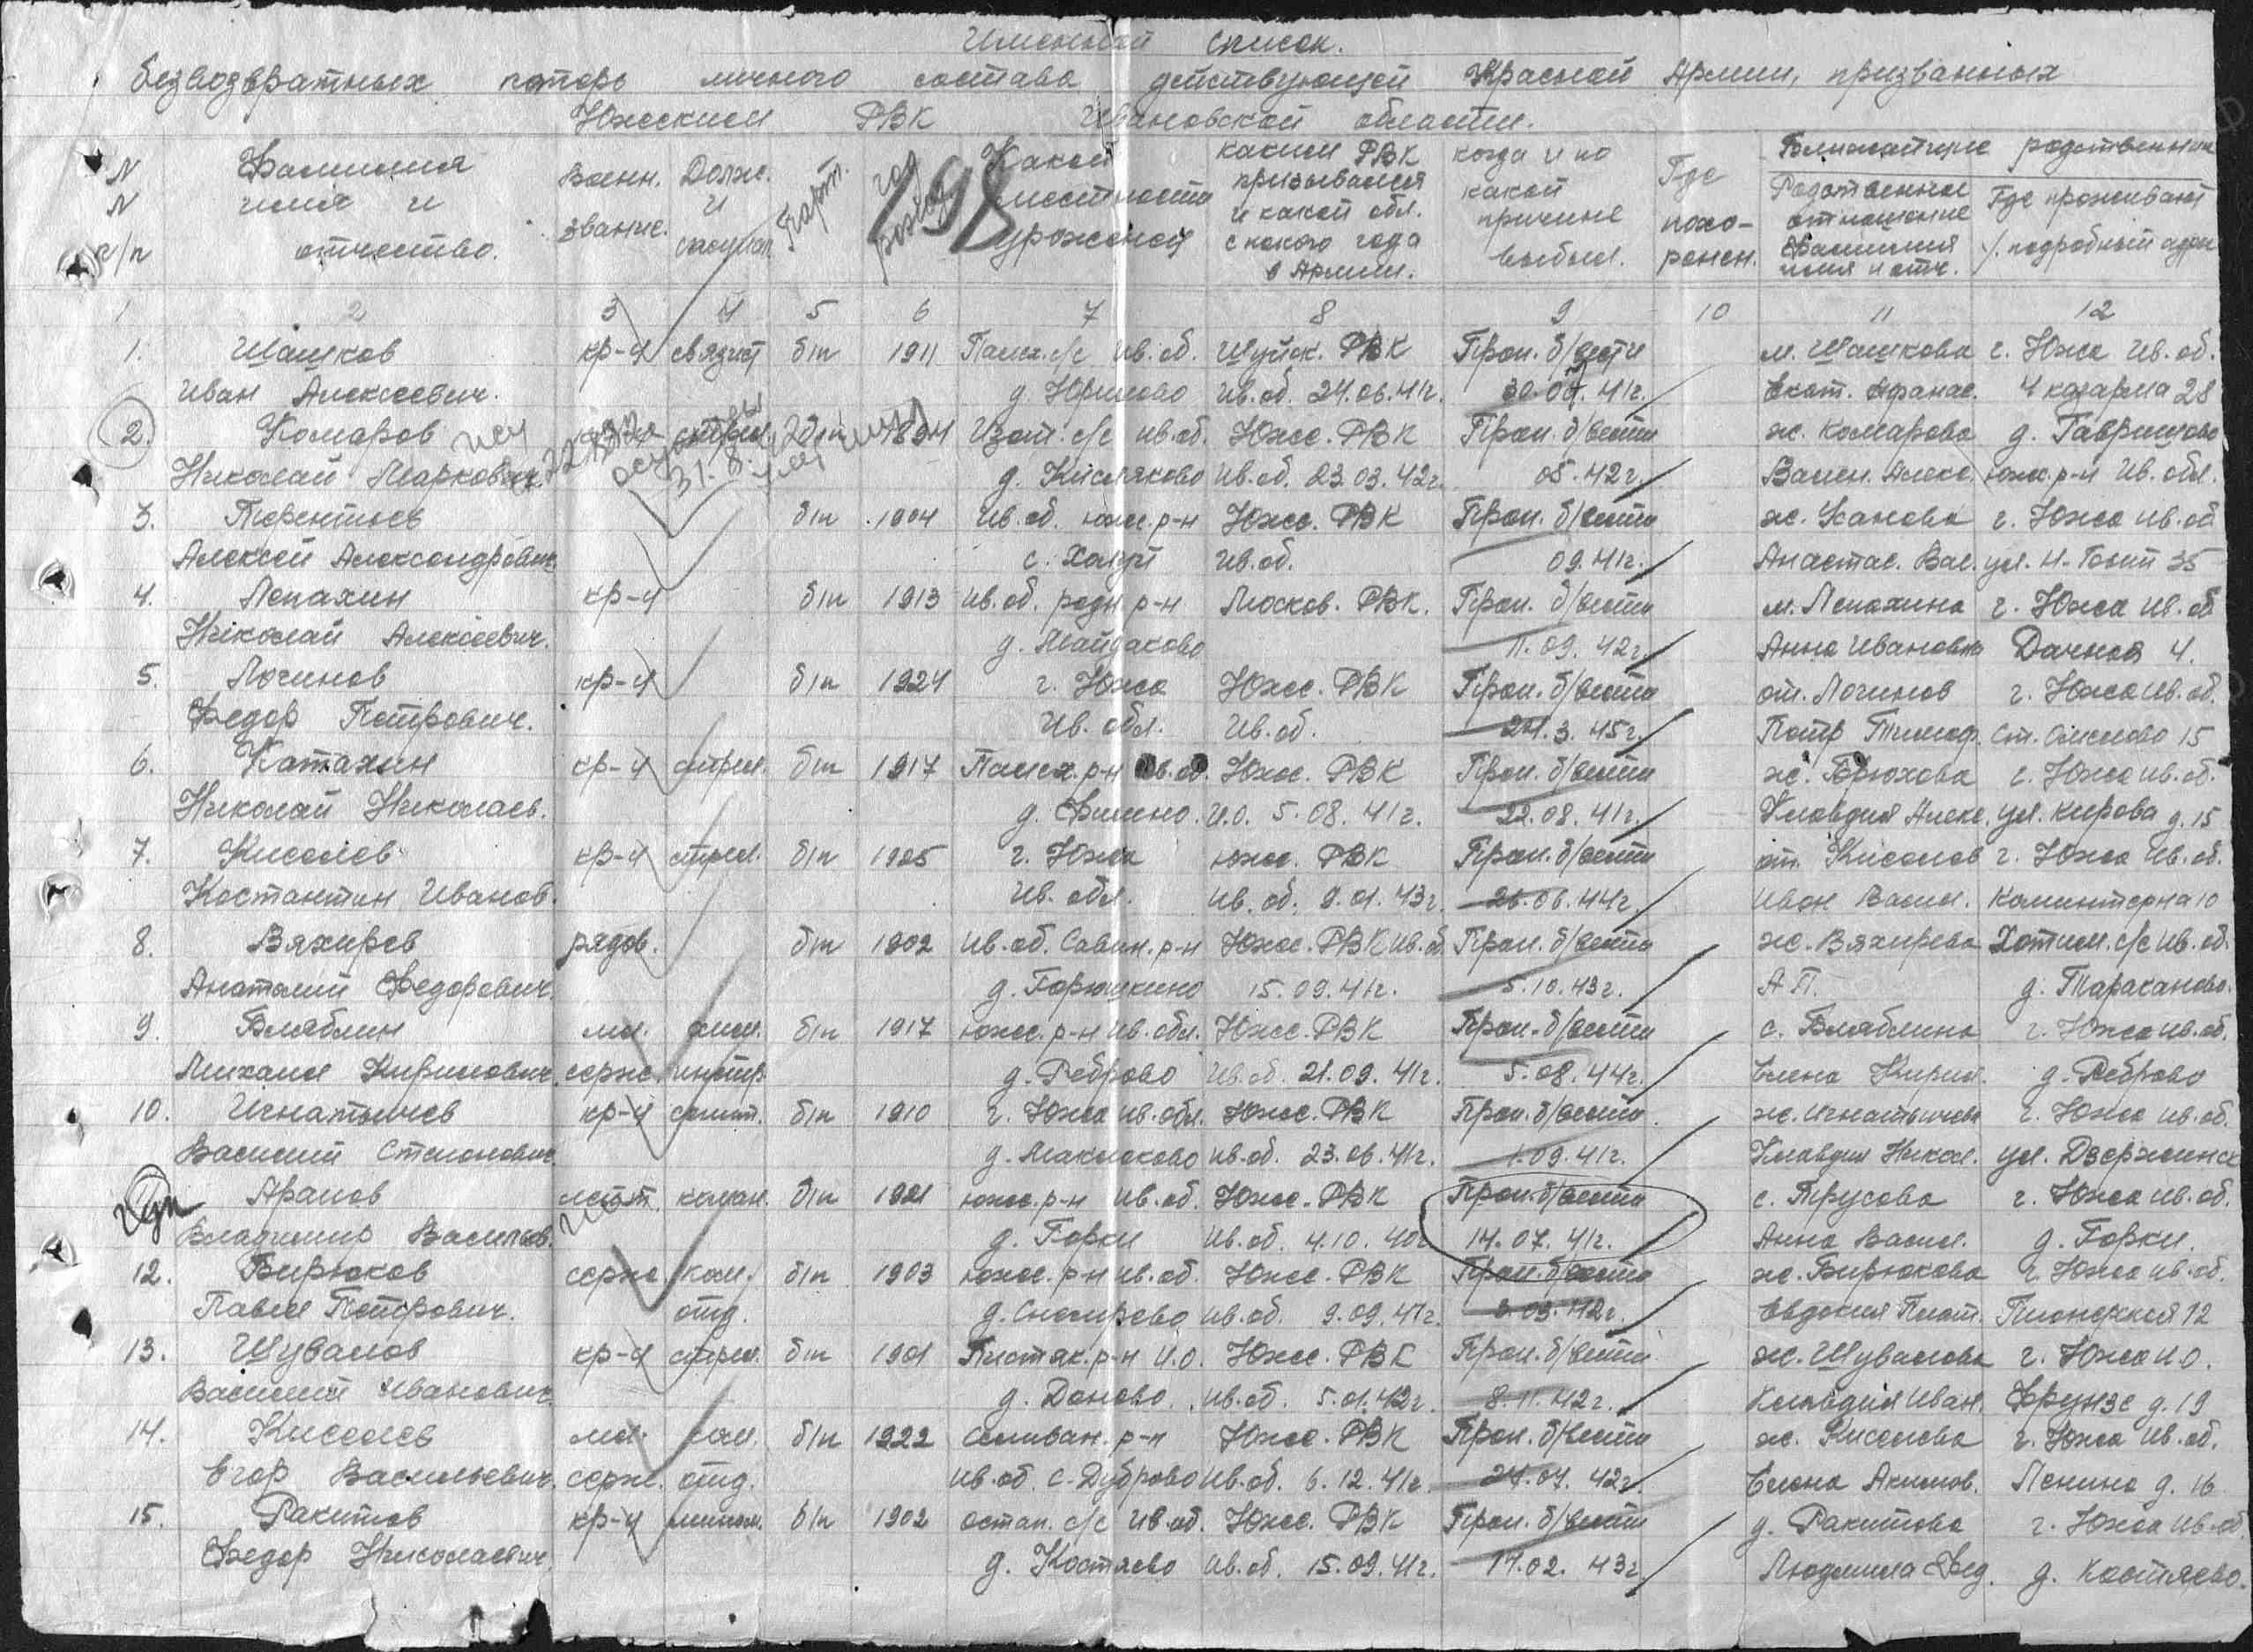 Именной список.
безвозвратных потерь личного состава действующей Красной Армии, призванных
Южским РВК Ивановской области.
№ № п/п
Фамилия имя и отчество.
Воен. звание.
Долж. и специал.
Парт.
год рожд.
198
Какой местности уроженец
каким РВК призывался и какой обл. с какого года в Армии.
когда и по какой причине выбыл.
Где похо-ронен.
Ближайшие родственники
Родственное отношение фамилия имя и отч.
Где проживают подробный адрес
1 2 3 4 5 6 7 8 9 10 11 12
1. Шашков кр-ц связист б/п 1911 Палех. с/с Ив. об. Шуйск. РВК Проп. б/вести м. Шашкова г. Южа Ив. об.
Иван Алексеевич. д. Юрилово Ив. об. 24.06.41г. 41г. Екат. Афанас. 4 казарма 28
2. Комаров 1894 Изот. с/с Ив. об. Юж. РВК Проп. б/вести ж. Комарова д. Гаврилово
Николай Маркович. 31.8. д. Кисляково Ив. об. 23.03.42г. 05.42г. Вален. Алекс. Юж. р-н Ив. обл.
3. Терентьев б/п 1904 Ив. об. юж. р-н Южс. РВК Проп. б/вести ж. Усанова г. Южа Ив. об
Алексей Александрович с. Холуй Ив. об. 09.41г. Анастас. Вас. ул. 35
4. Лепахин кр-ц б/п 1913 Ив. об. родн. р-н Москов. РВК. Проп. б/вести м. Лепахина г. Южа Ив. об
Николай Алексеевич. д. Майдаково 11.09.42г. Анна Ивановна Дачная 4.
5. Логинов кр-ц б/п 1924 г. Южа Южс. РВК Проп. б/вести от. Логинов г. Южа Ив. об.
Федор Петрович. Ив. обл. Ив. об. 24.3.45г. Петр Тимоф. Ст. 15
6. Катахин кр-ц стрел. б/п 1917 Палех. р-н Ив. об. Южс. РВК Проп. б/вести ж. Брюхова г. Южа Ив. об.
Николай Николаев. д. Филино. И.О. 5.08.41г. 22.08.41г. Клавдия Алекс. ул. Кирова д. 15
7. Киселев кр-ц стрел. б/п 1925 г. Южа южс. РВК Проп. б/вести от. Киселев г. Южа Ив. об.
Костантин Иванов. Ив. обл. Ив. об. 9.01.43г. 26.06.44г. Иван Васил. Коминтерна 10
8. Вяхирев рядов. б/п 1902 Ив. об. Савин. р-н Южс. РВК Ив. об. Проп. б/вести ж. Вяхирева Хотим. с/с Ив. об.
Анатолий Федорович. д. Горюшкино 15.09.41г. 5.10.43г. А П. д. Тараканово.
9. Бляблин мл. хим. б/п 1917 южс. р-н Ив. обл. Южс. РВК Проп. б/вести с. Бляблина г. Южа Ив. об.
Михаил Кирилович. серж. инстр. д. Реброво Ив. об. 21.09.41г. 5.08.44г. Елена Кирил. д. Реброво
10. Игнатычев кр-ц б/п 1910 г. Южа Ив. обл. Южс. РВК Проп. б/вести ж. Игнатычева г. Южа Ив. об.
Василий Степанович д. Ив. об. 23.06.41г. 1.09.41г. Клавдия Никол. ул. Дзержинск
Арапов лейт. коман. б/п 1921 южс. р-н Ив. об. Южс. РВК Проп. б/вести с. Трусова г. Южа Ив. об.
Владимир Васильев. д. Горки Ив. об. 4.10.40г 14.07.41г. Анна Васил. д. Горки.
12. Бирюков серж ком. б/п 1903 южс. р-н Ив. об. Южс. РВК Проп. б/вести ж. Бирюкова г. Южа Ив. об.
Павел Петрович. отд. д. Снегирево Ив. об. 9.09.41г. 03.42г. Евдокия Плат. Пионерская 12
13. Шувалов кр-ц стрел. б/п 1901 Пестяк. р-н И.О. Южс. РВК Проп. б/вести ж. Шувалова г. Южа И.О.
Василий Иванович. д. Доново. Ив. об. 5.01.42г. 8.11.42г. Клавдия Иван. Фрунзе д. 19
14. Киселев мл. ком. б/п 1922 Селиван. р-н Южс. РВК Проп. б/вести ж. Киселева г. Южа Ив. об.
Егор Васильевич. серж. отд. Ив. об. с. Дуброво Ив. об. 6.12.41г. 24.07.42г. Елена Акимов. Ленина д. 16
15. Ракитов кр-ц б/п 1902 остап. с/с Ив. об. Южс. РВК Проп. б/вести д. Ракитова г. Южа Ив. об.
Федор Николаевич. д. Костяево Ив. об. 15.09.41г. 17.02.43г Людмила Фед. д. Костяево.